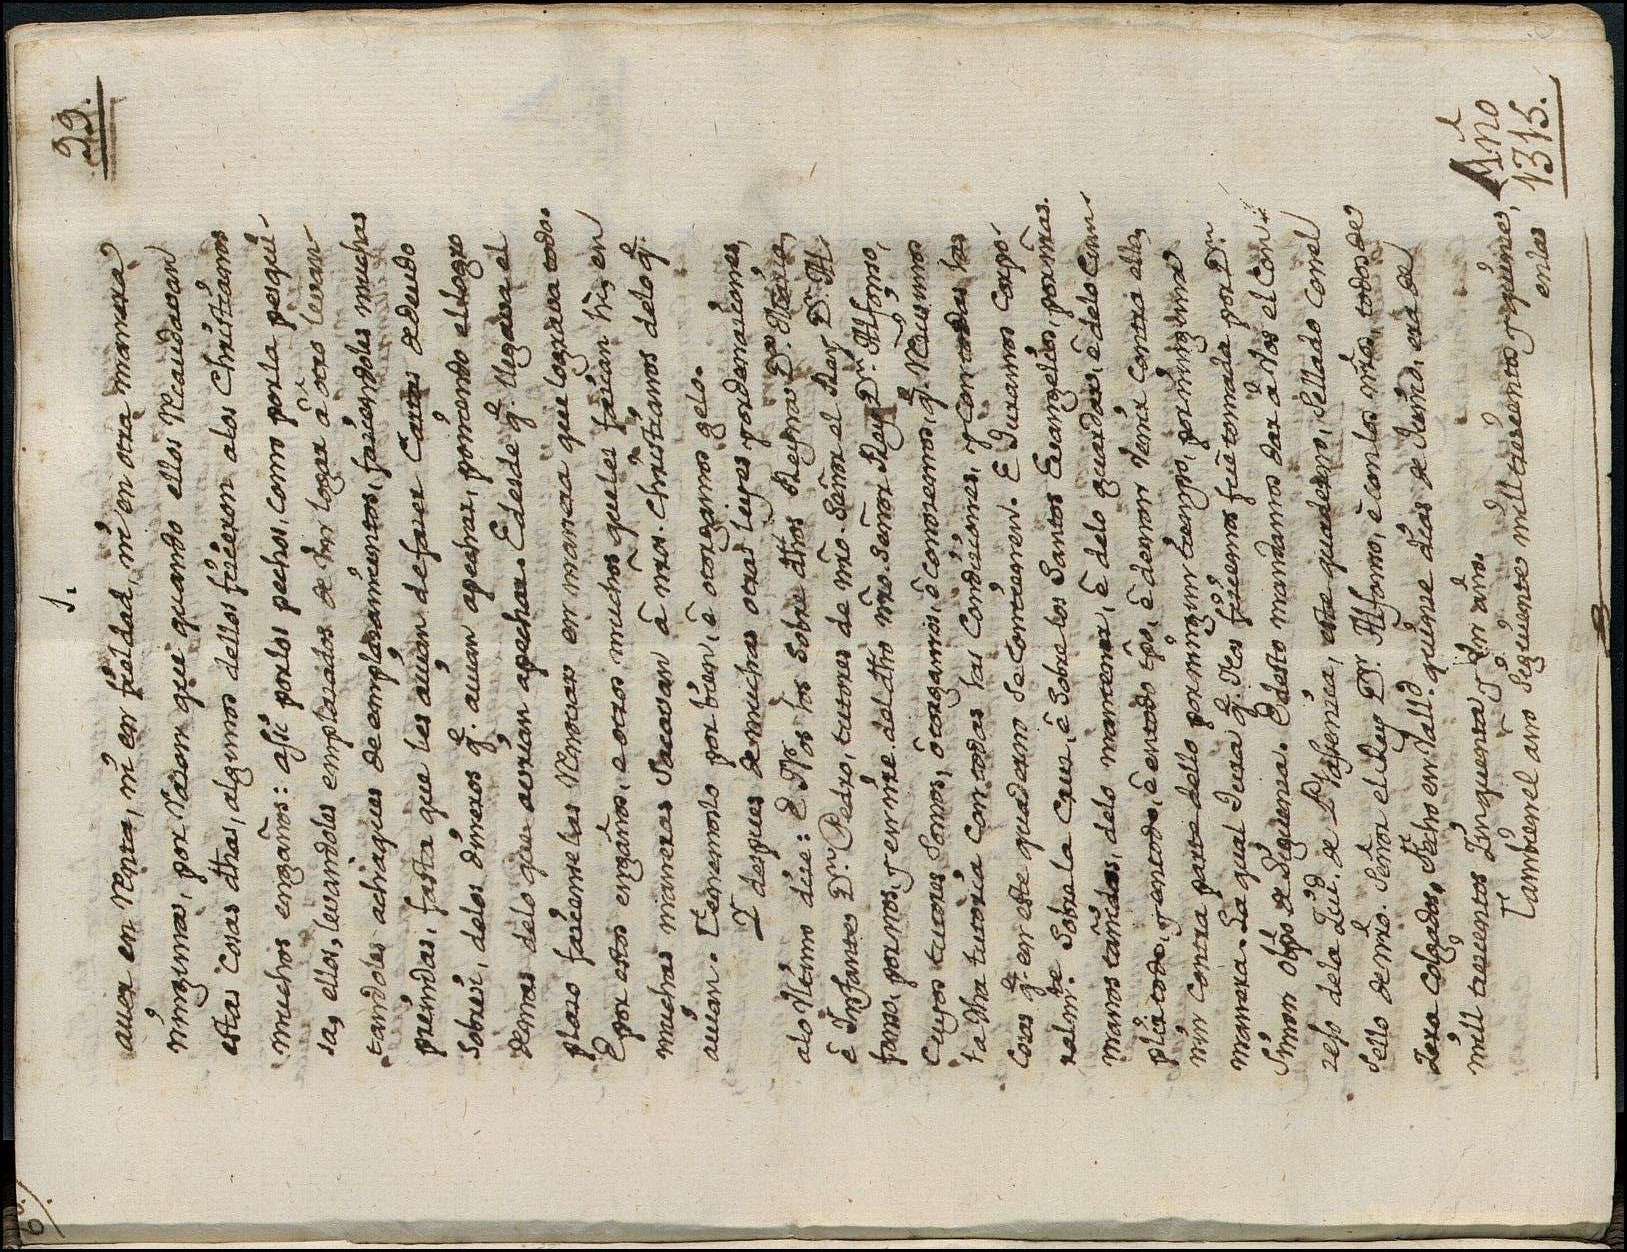 29.
1.
auer en Renta, ni en fieldad, ni en otra manera
ningunas, por razon que quando ellos Recaudauan
estas cosas dhas, algunos dellos ficieron alos Christianos
muchos engaños: assi por los pechos, como por la pesqui-
sa, ellos, leuandolos emplazados de un logar â otro leuan-
tandoles achaques de emplazamientos, faciendoles muchas
prendas, fasta que les auian de facer Cartas de deudo
sobresi, delos dineros q.e auian apechar, poniendo el logro
demas delo que aurian apechar. E desde q.e llegaua el
plazo facianselas Renouar en manera que lograua todo.
E por estos engaños, e otros muchos queles facian his, en
muchas maneras sacauan â mios. Christianos delo q.e
auian. Tenemoslo por bien, ê otorgamos gelo.
Y despues de muchas otras leyes y ordenaciones,
alo Ultimo dice: E Nos los sobre dhos Reyna D.a Maria,
ê Infantes D.n Pedro, tutores de mio Señor el Rey D.n Al-
fonso, por nos, y en nre. del dho mio Señor Rey D.n Alfonso,
Cuyos tutores Somos, otorgamos, ê Conocemos, q.e Recivimos
la dha tutoria Con todas las Condiciones, y con todas las
Cosas q.e en este quaderno se Contienen. E Juramos Corpo-
ralm.te Sobre la Cruz, ê Sobre los Santos Euangelios, por nras.
manos tañidos, delo mantener, ê delo guardar, ê delo Cum-
plir todo, y en todo, ê en todo tpo, ê de non Venir Contra ello,
nin Contra parte dello por ningun tiempo, por ninguna
manera. La qual Jura q.e Nos ficiemos fue tomada por D.n
Simon Obpo de Siguenza. E desto mandamos dar â Vos el Con-
zejo dela Ziu.d de Plasencia, este quaderno, Sellado Con el
Sello de mio Señor el Rey D.n Alfonso, ê con los nros, todos de
Zera Colgados, Fecho en Vall.d quince dias de Junio, era de
mill trecientos Zinquenta y un años
Tambien el año Siguiente mill trecientos y quince,
Año
1315.
en las